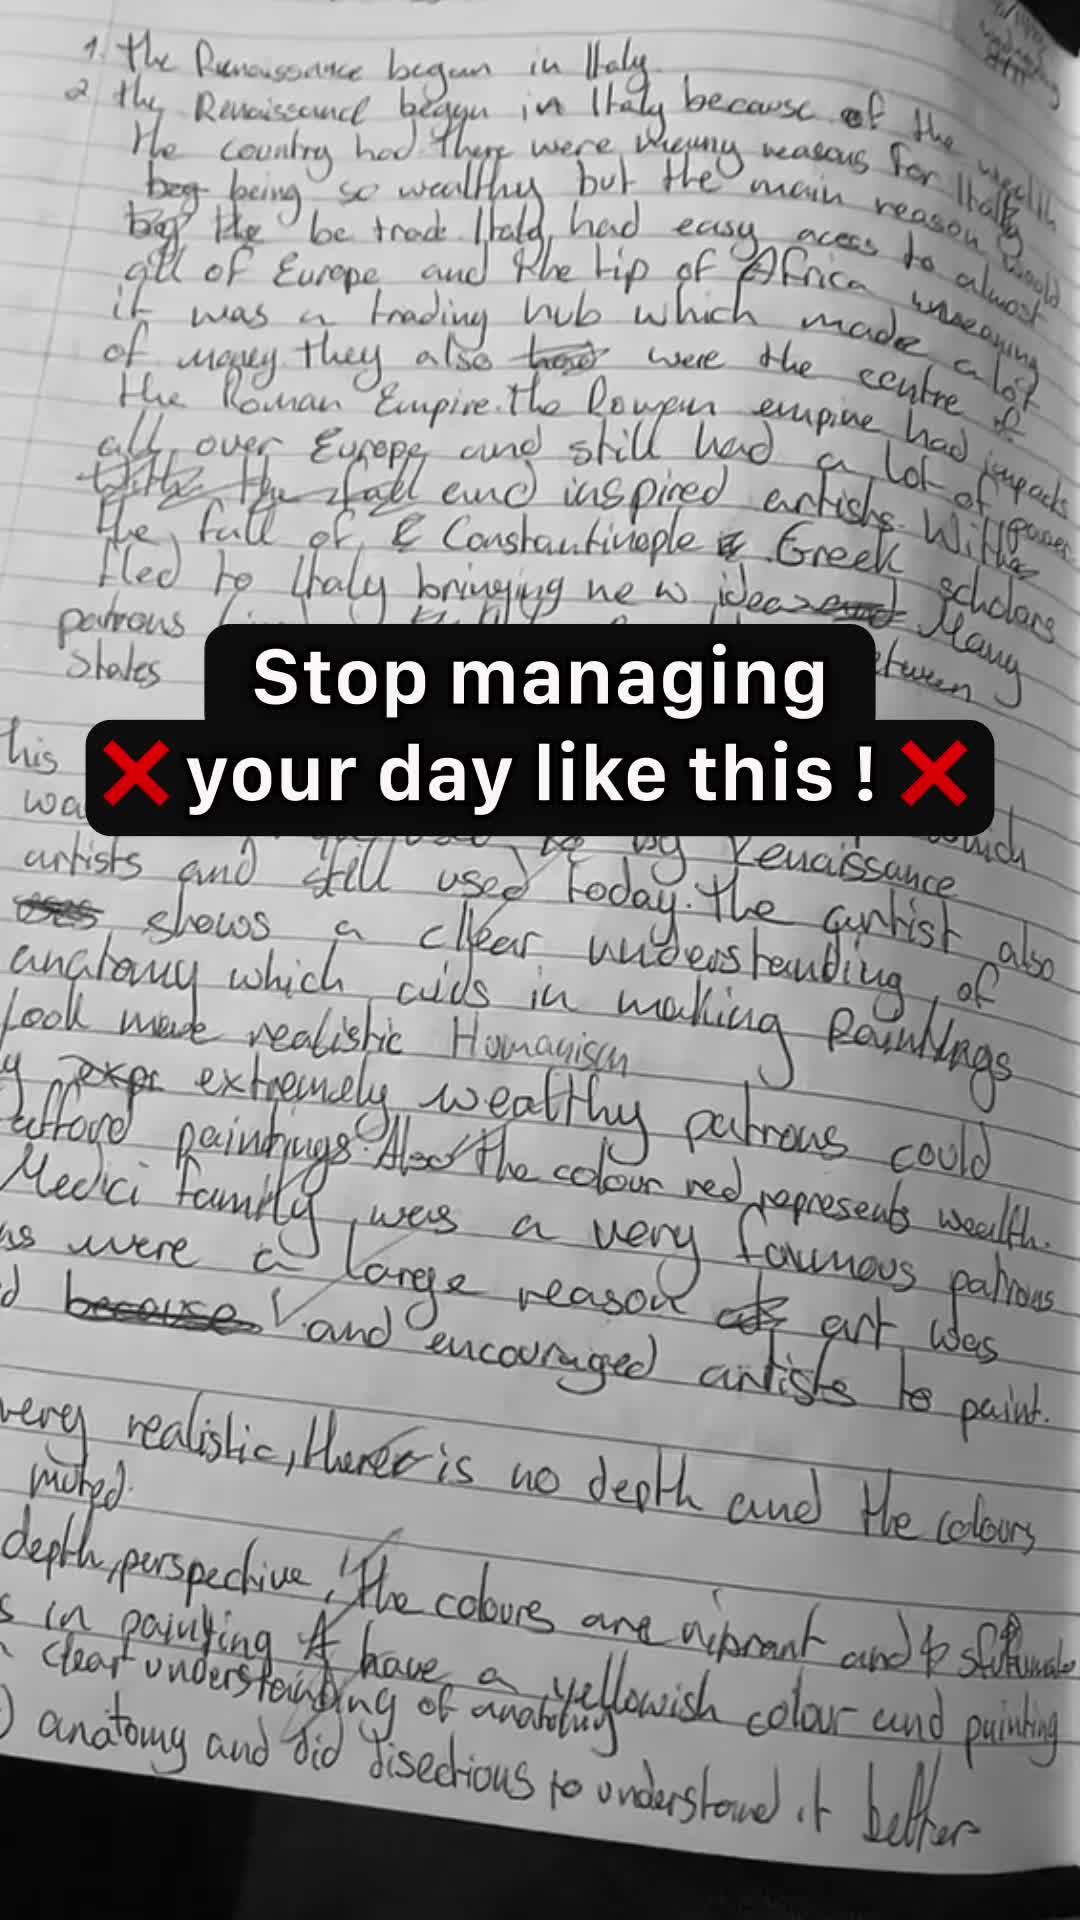 1. the Renaissance began in Italy
2 the Renaissance began in Italy because of the wealth
the country had. There were many reasons for Italy
beg being so wealthy but the main reason would
the be trade. Italy had easy acess to almost
all of Europe and the tip of Africa meaning
it was a trading hub which made a lot
of money. they also were the centre of
the Roman Empire. the empire had impacts
all over Europe and still had a lot of power
With the fall and inspired artists. With
the fall of Constantinople Greek scholars
fled to Italy bringing new ideas Many
patrons between
States
Stop managing
❌ your day like this ! ❌
this
which
by Renaissance
artists and still used today. the artist also
shows a clear understanding of
anatomy which aids in making Paintings
look more realistic Humanism
y expr extremely wealthy patrons could
afford paintings. Also the colour red represents wealth.
Medici family was a very famous patrons
ns were a large reason art was
d because and encouraged artists to paint.
very realistic, there is no depth and the colours
muted.
depth, perspective, the colours are and
s in painting have a yellowish colour and painting
clear understanding of anatomy
) anatomy and did disections to understand it better